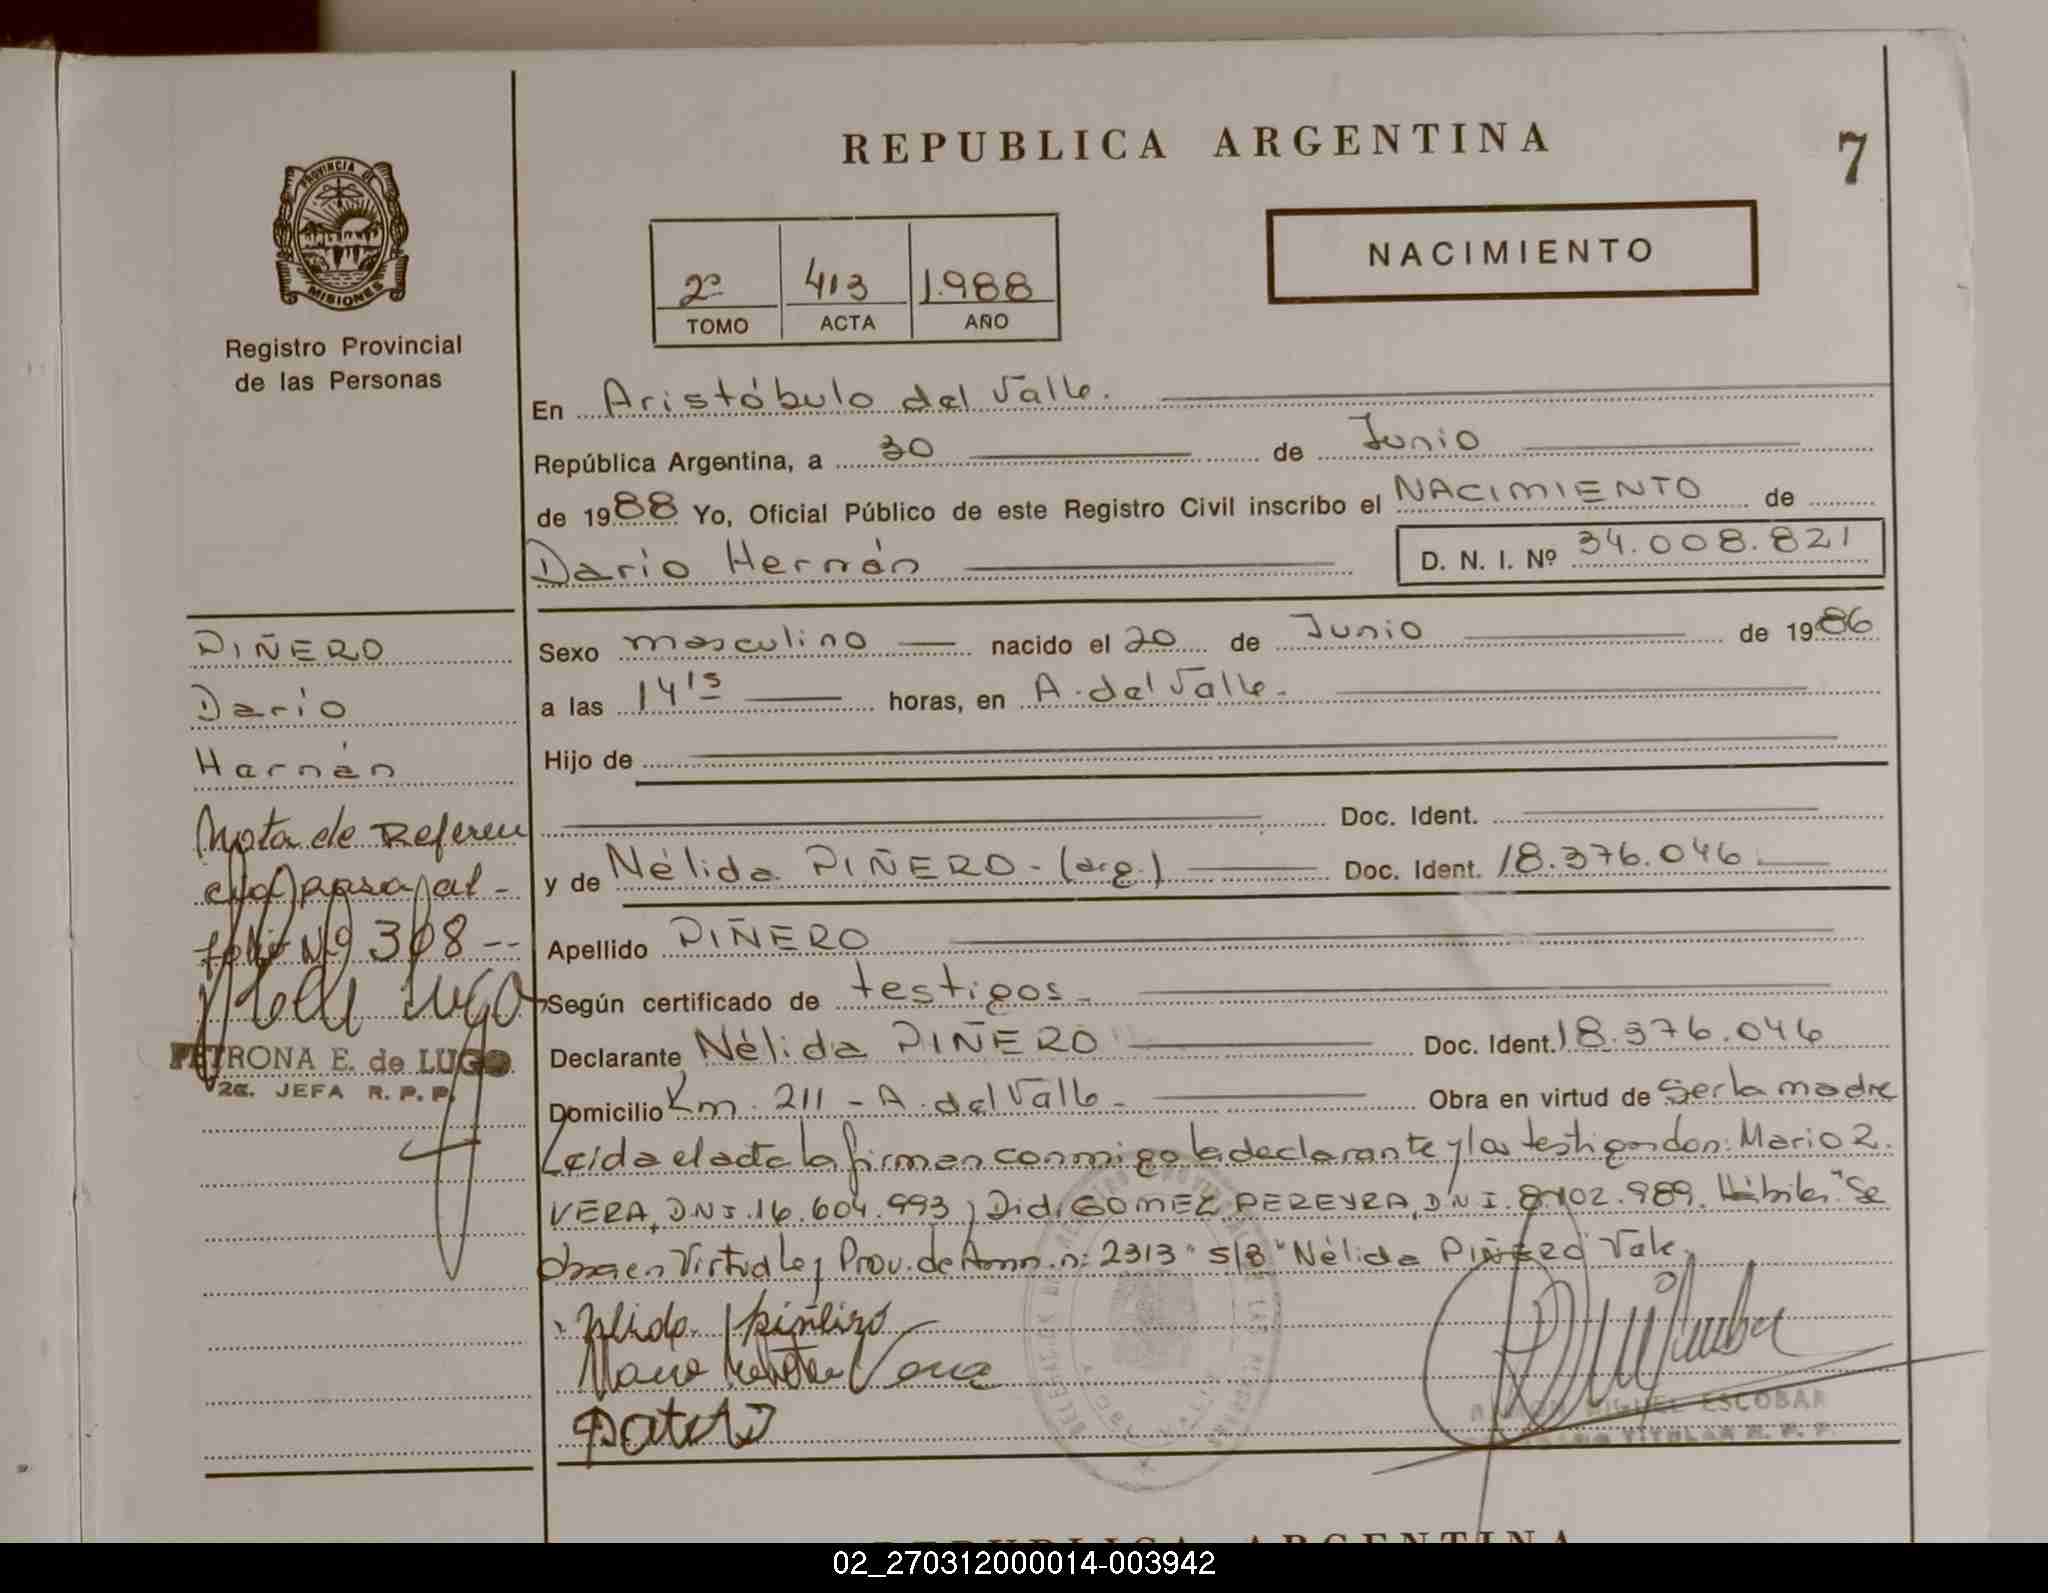 REPUBLICA ARGENTINA
7
PROVINCIA DE
MISIONES
Registro Provincial
de las Personas
NACIMIENTO
2º 413 1.988
TOMO ACTA AÑO
En Aristóbulo del Valle.
República Argentina, a 30 de Junio
de 1988 Yo, Oficial Público de este Registro Civil inscribo el NACIMIENTO de
Darío Hernán D. N. I. Nº 34.008.821
Sexo masculino nacido el 20 de Junio de 1986
a las 14'15 horas, en A. del Valle.
Hijo de
Doc. Ident.
y de Nélida PIÑERO - (arg.) Doc. Ident. 18.376.046
Apellido PIÑERO
Según certificado de testigos
Declarante Nélida PIÑERO Doc. Ident. 18.376.046
Domicilio Km. 211 - A. del Valle. Obra en virtud de Ser la madre
Leída el acta la firman conmigo la declarante y los testigos don: Mario R.
VERA, DNI. 16.604.993 y Didi GOMEZ PEREYRA, DNI. 8.102.989. Hábiles. "Se
obra en Virtud Ley Prov. de Amn. n: 2313" S/B "Nélida PIÑERO" Vale.
PIÑERO
Darío
Hernán
Nota de Referen
cia pasa al -
folio Nº 308 --
PETRONA E. de LUGO
2a. JEFA R. P. P.
MIGUEL ESCOBAR
TITULAR R. P. P.
REPUBLICA ARGENTINA
02_270312000014-003942